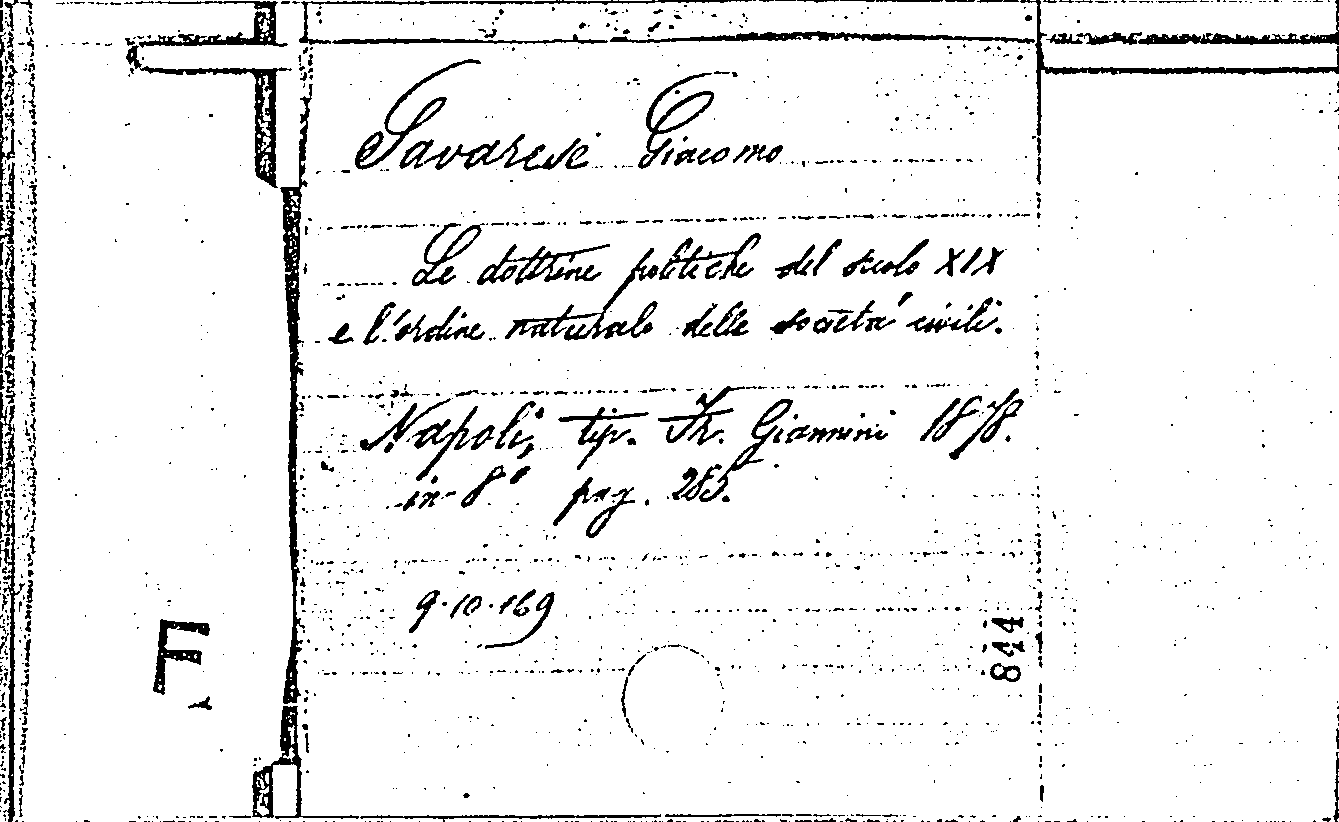 Savarese Giacomo
Le dottrine politiche del secolo XIX
e l'ordine naturale delle società civili.
Napoli, tip. Fr. Giannini 1878.
in-8° pag. 285.
9.10.169
844
F